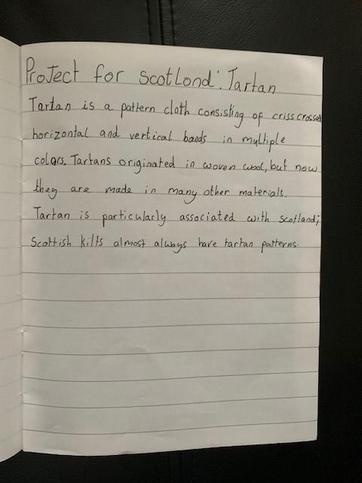 Project for Scotlond: Tartan
Tartan is a pattern cloth consisting of criss crossed
horizontal and vertical bads in multiple
colors. Tartans originated in woven wool, but now
they are made in many other materials.
Tartan is particularly associated with scotland;
Scottish kilts almost always have tartan patterns.